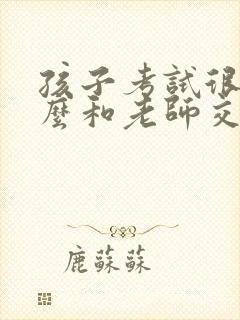 孩子考試很
麼和老師交
鹿蘇蘇